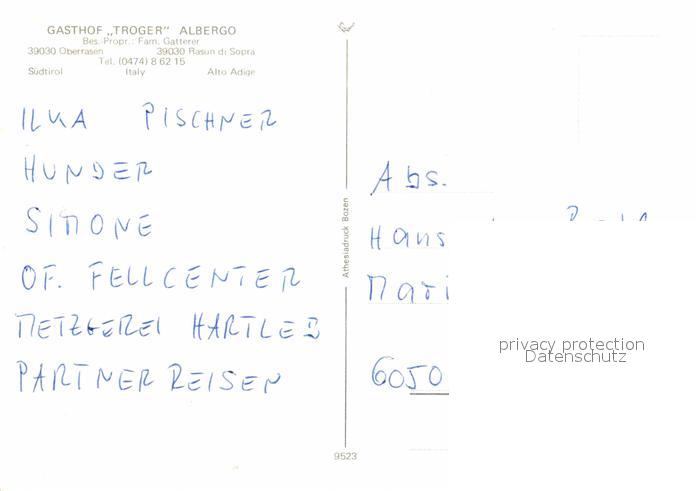 GASTHOF „TROGER" ALBERGO
Bes.-Propr.: Fam. Gatterer
39030 Oberrasen 39030 Rasun di Sopra
Tel. (0474) 8 62 15
Südtirol Italy Alto Adige
ILKA PISCHNER
HUNDER
SIMONE
OF. FELLCENTER
METZGEREI HARTLEB
PARTNER REISEN
Athesiadruck Bozen
9523
Abs.
Hans
Mari
6050
privacy protection
Datenschutz